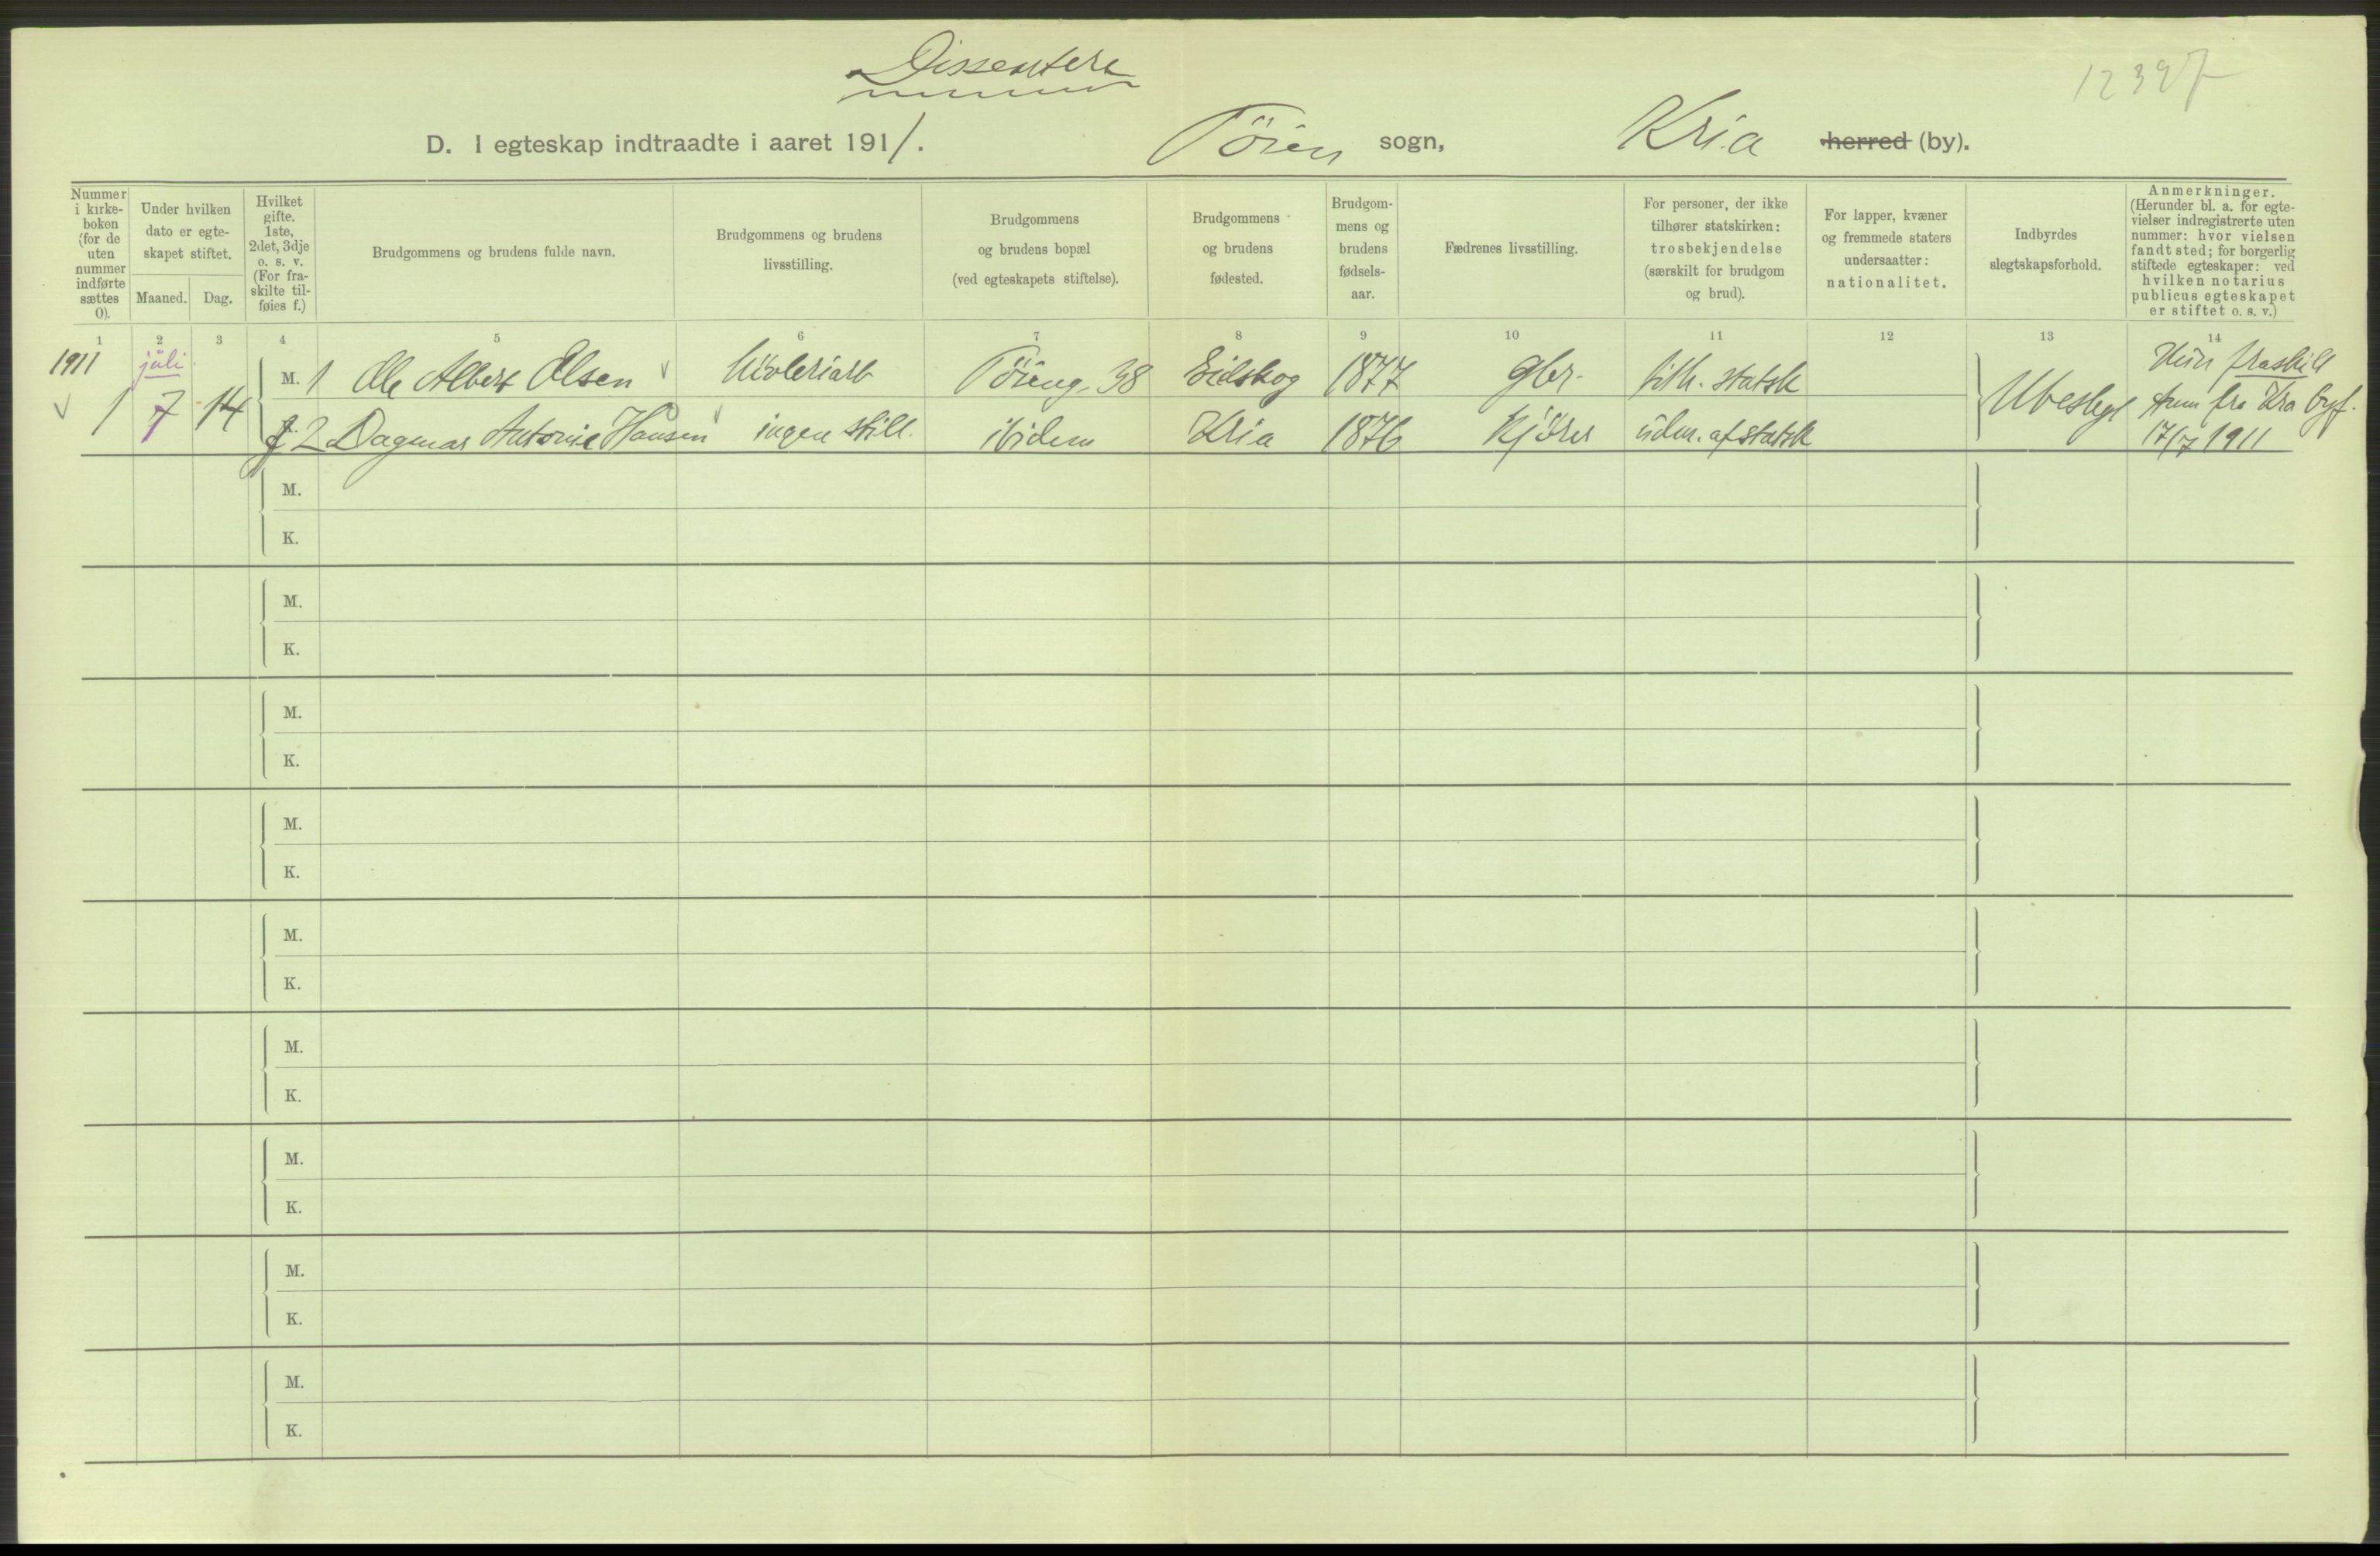 Dissentere
12397
D. I egteskap indtraadte i aaret 1911. Töien sogn, Kria herred (by).
Nummer i kirke-boken (for de uten nummer indførte sættes 0).
Under hvilken dato er egte-skapet stiftet.
Maaned. Dag.
Hvilket gifte. 1ste, 2det, 3dje o. s. v. (For fra-skilte til-føies f.)
Brudgommens og brudens fulde navn.
Brudgommens og brudens livsstilling.
Brudgommens og brudens bopæl (ved egteskapets stiftelse).
Brudgommens og brudens fødested.
Brudgom-mens og brudens fødsels-aar.
Fædrenes livsstilling.
For personer, der ikke tilhører statskirken: trosbekjendelse (særskilt for brudgom og brud).
For lapper, kvæner og fremmede staters undersaatter: nationalitet.
Indbyrdes slegtskapsforhold.
Anmerkninger. (Herunder bl. a. for egte-vielser indregistrerte uten nummer: hvor vielsen fandt sted; for borgerlig stiftede egteskaper: ved hvilken notarius publicus egteskapet er stiftet o. s. v.)
1 2 3 4 5 6 7 8 9 10 11 12 13 14
1911 juli
M. 1 Ole Albert Olsen Töieng. 38 Eidskog 1877 gbr. tilh. statsk
1 7 14
f. 2 Dagmar Antonie Hansen ingen still. ibidem Kria 1876 Kjörer udm. af statsk
Ubeslegt
Hun fraskilt
fra Kra byf.
17/7 1911
M.
K.
M.
K.
M.
K.
M.
K.
M.
K.
M.
K.
M.
K.
M.
K.
M.
K.